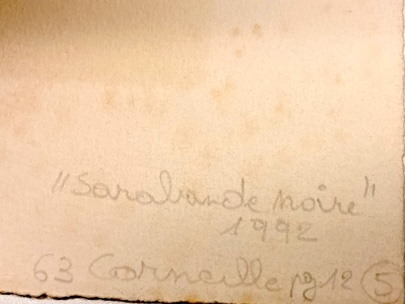 "Sarabande noire"
1992
63 Corneille pg 12 (5)